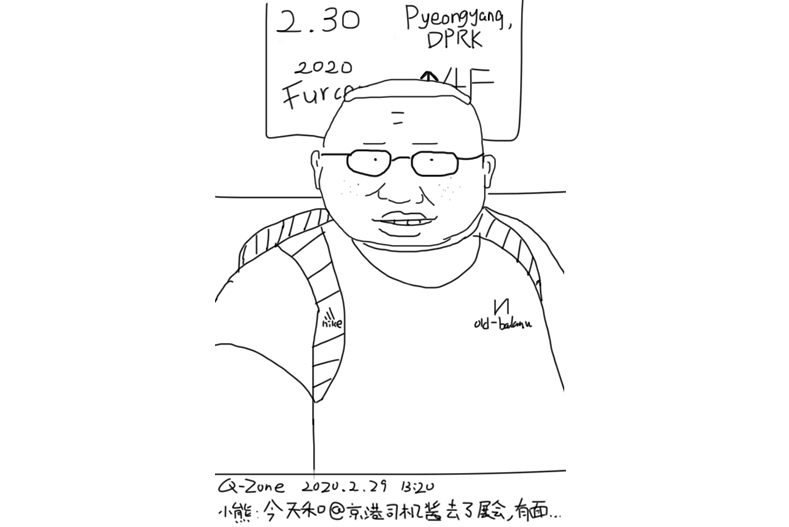 2.30
Pyeongyang,
DPRK
2020
Furco
YLF
nike
И
old-balanu
Q-Zone 2020.2.29 13:20
小熊:今天和@京港司机酱去了展会,有面...